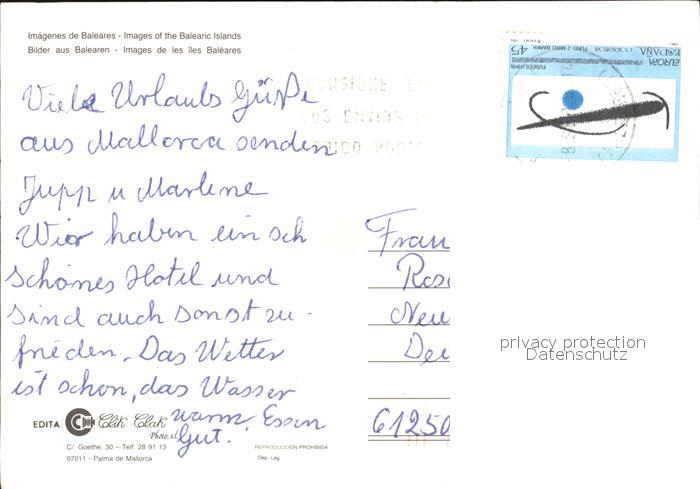 Imágenes de Baleares - Images of the Balearic Islands
Bilder aus Balearen - Images de les îles Baléares
Viele Urlaubs Grüße
aus Mallorca senden
Jupp u Marlene
Wir haben ein sch
schönes Hotel und
sind auch sonst zu-
frieden. Das Wetter
ist schon, das Wasser
warm, Essen
Gut.
EDITA Clik Clak
Photo, s.l.
C/. Goethe, 30 - Telf. 28 91 13
07011 - Palma de Mallorca
REPRODUCCION PROHIBIDA
Dep. Leg
EUROPA
ESPAÑA
45
LOS ENVIOS
Frau
Ros
Neu
Deu
61250
privacy protection
Datenschutz